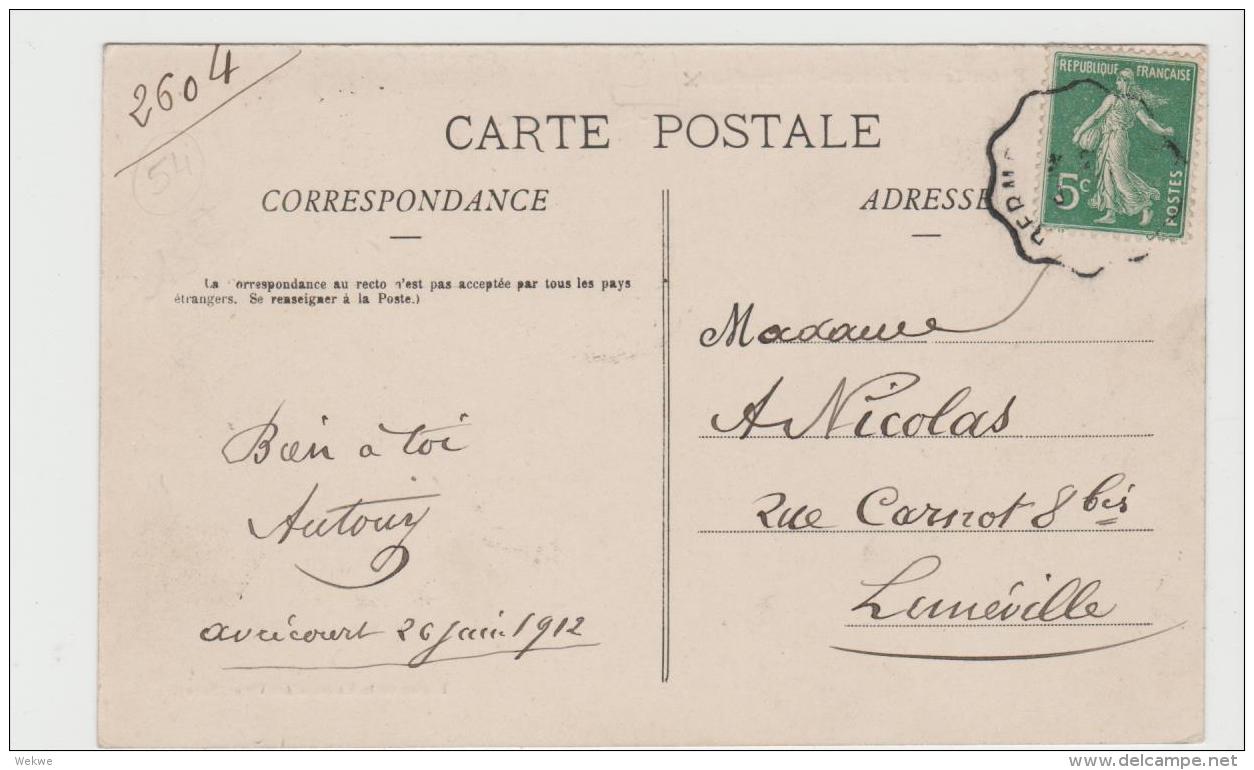 2604
54
CARTE POSTALE
CORRESPONDANCE
ADRESSE
REPUBLIQUE FRANÇAISE
5c
POSTES
La Correspondance au recto n'est pas acceptée par tous les pays
étrangers. Se renseigner à la Poste.)
Bien à toi
Avricourt 26 juin 1912
Madame
A Nicolas
Rue Carnot 8 bis
Lunéville
Wekwe
delcampe.net